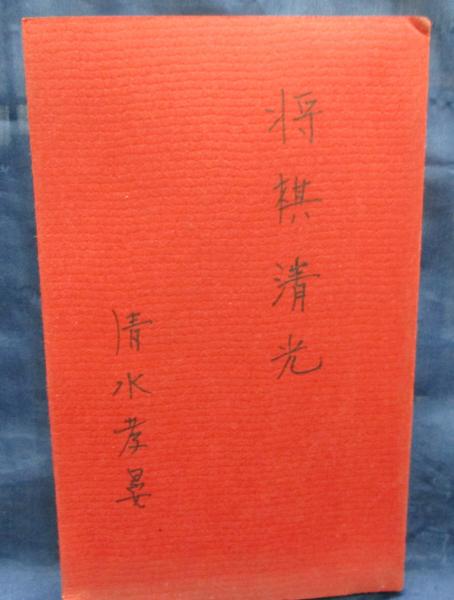 将棋清光
清水孝晏